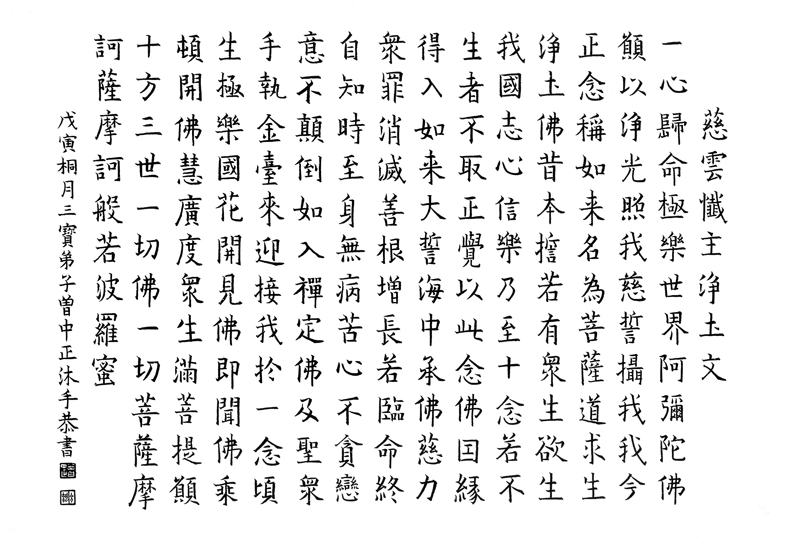 慈雲懺主浄土文
一心歸命極樂世界阿彌陀佛
願以浄光照我慈誓攝我我今
正念稱如来名為菩薩道求生
浄土佛昔本擔若有眾生欲生
我國志心信樂乃至十念若不
生者不取正覺以此念佛因緣
得入如来大誓海中承佛慈力
眾罪消滅善根增長若臨命終
自知時至身無病苦心不貪戀
意不顛倒如入禪定佛及聖眾
手執金臺來迎接我於一念頃
生極樂國花開見佛即聞佛乘
頓開佛慧廣度眾生滿菩提願
十方三世一切佛一切菩薩摩
訶薩摩訶般若波羅蜜
戊寅桐月三寶弟子曾中正沐手恭書